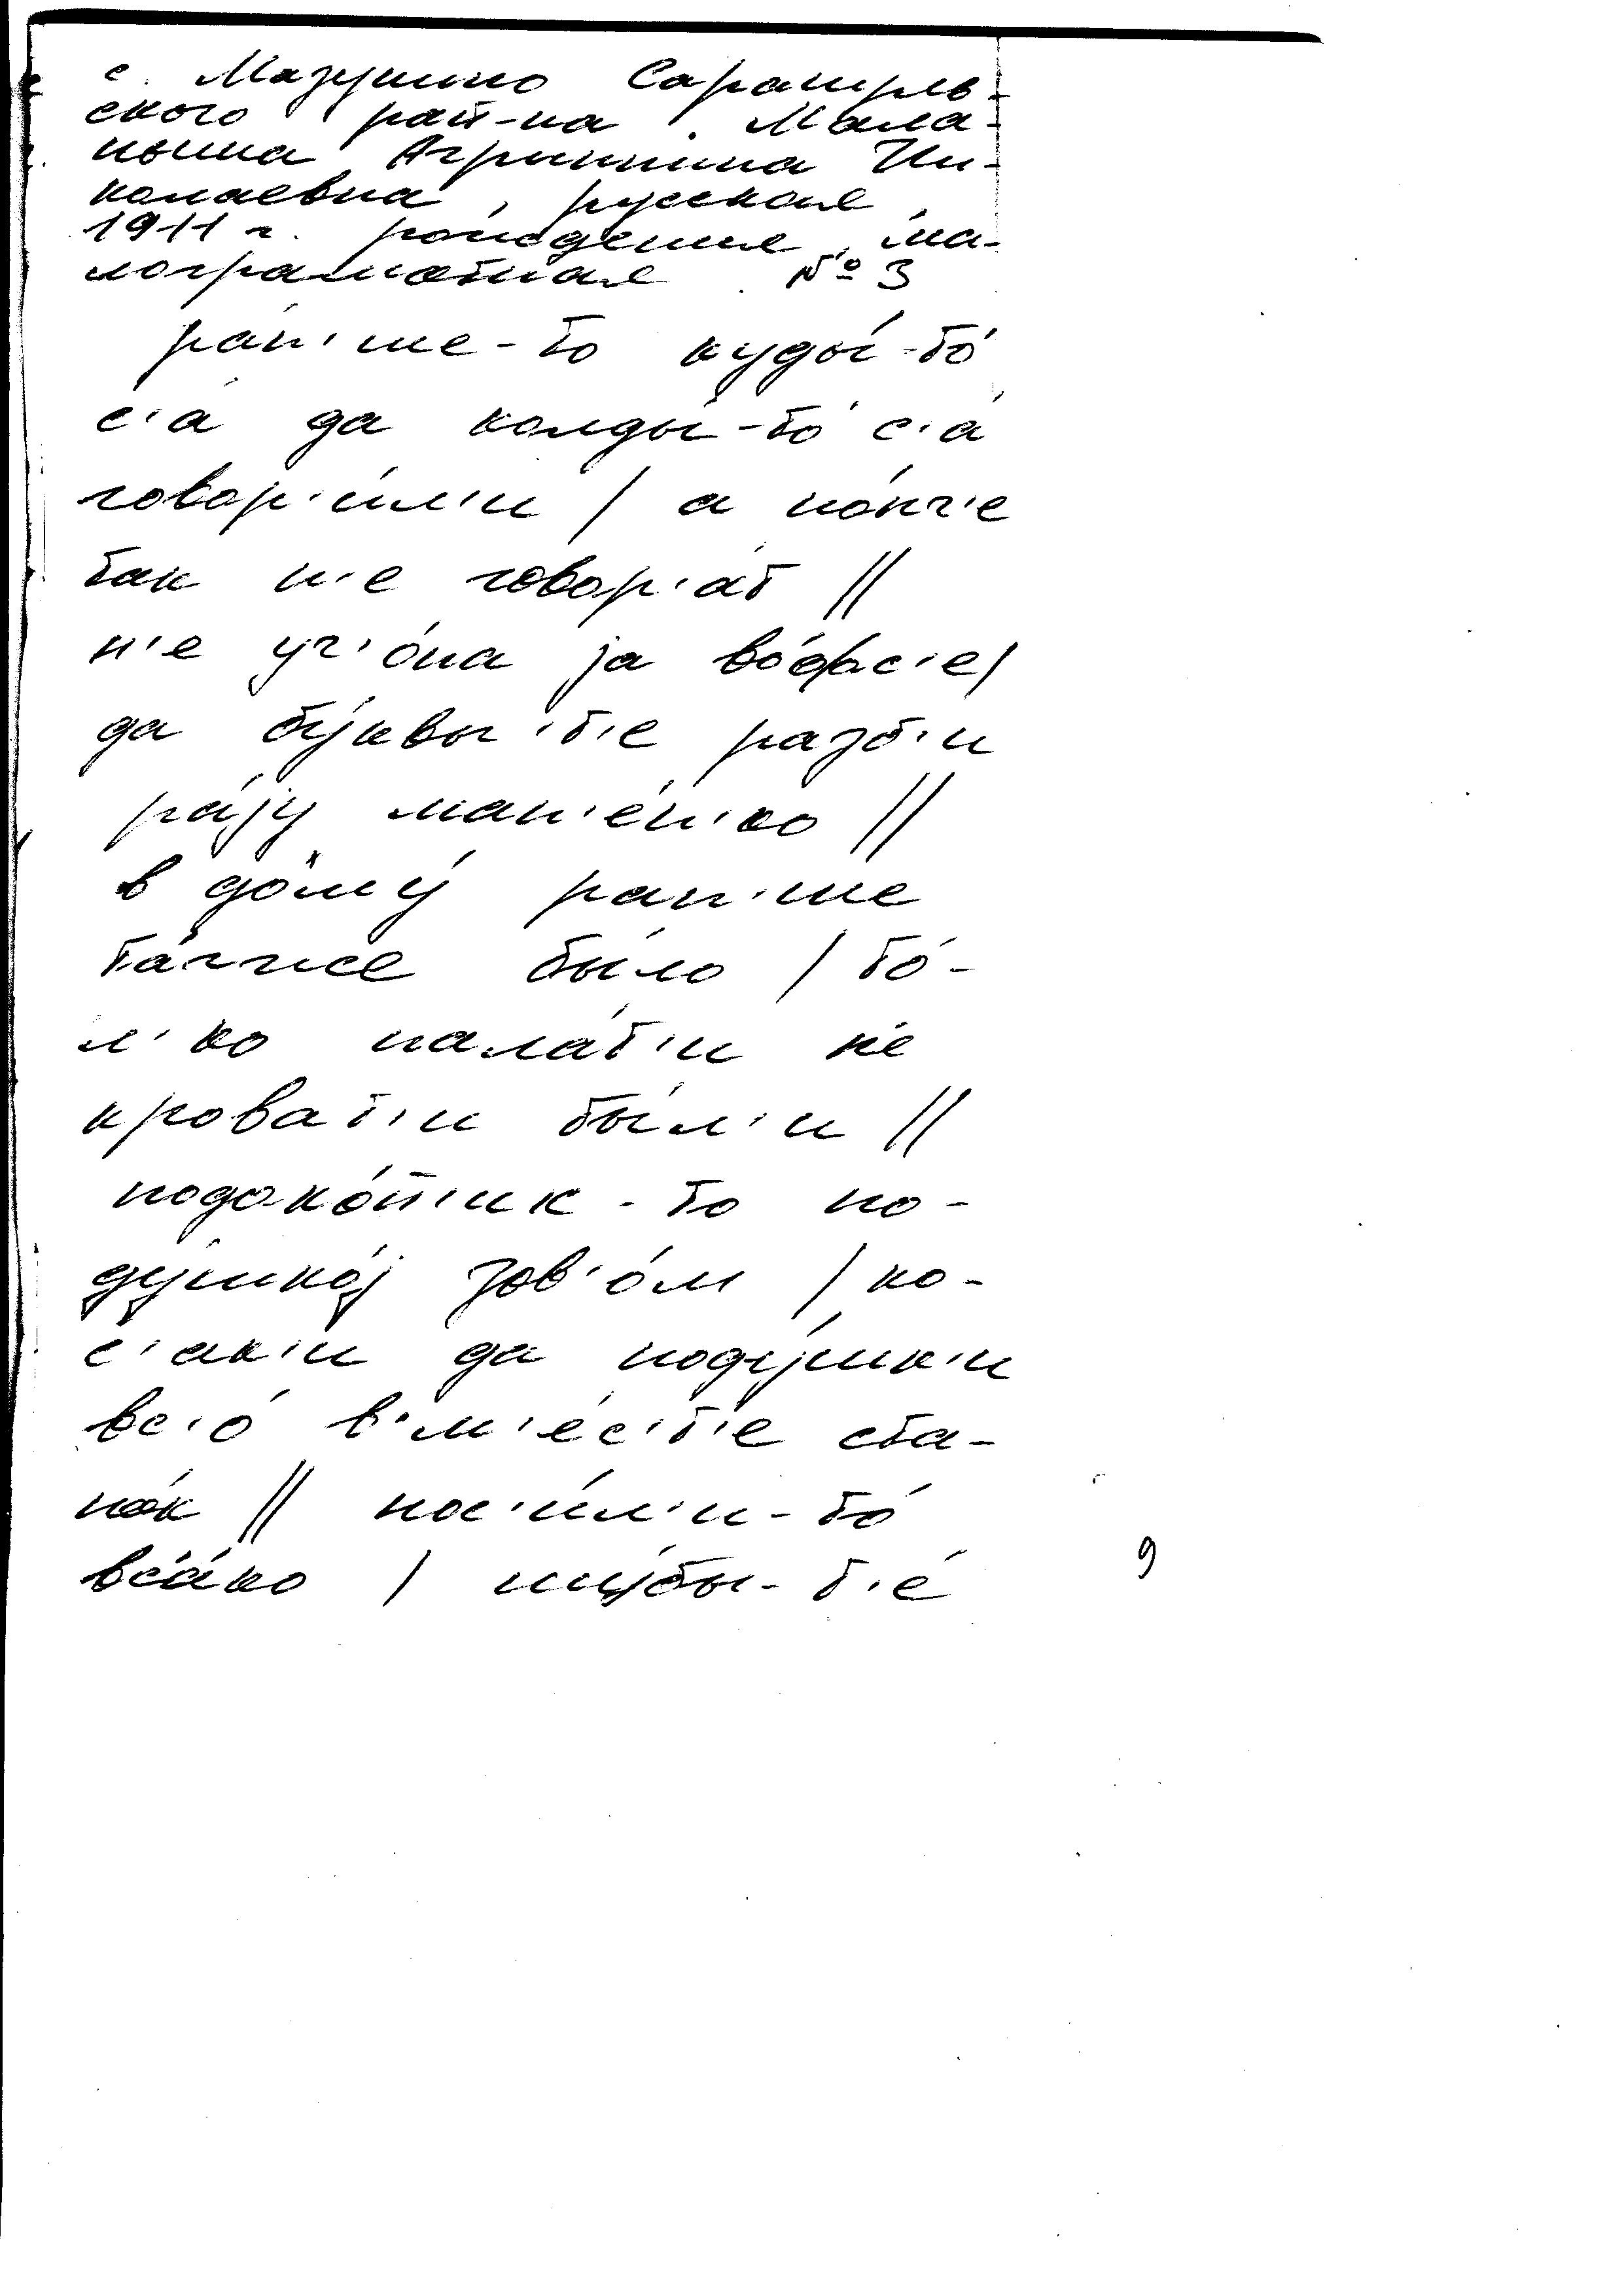 с. Мазунино Сарапуль-
ского рай-на. Мала-
ныша Агриппина Ни-
колаевна, русская,
1911 г. рождения, ма-
лограмотная. № 3
ра́н'ше-то куды́-то́
с'а да колды́-то́ с'а
говор'и́л'и / а но́нч'е
так н'е говор'а́т //
н'е уч'о́на jа во́фс'е /
да бу́квы т'е разб'и
ра́jу ман'е́н'ко //
в дому́ ран'ше
та́гже бы́ло / то́-
л'ко пала́т'и н'е
кроват'и бы́л'и //
подоко́нн'ик-то по-
ду́шкоj зов'о́м / ко-
с'ак'и да поду́шк'и
вс'о́ в'м'е́с'т'е ста-
но́к // нос'и́л'и-то́
вс'а́ко / шу́бы-т'е́
9